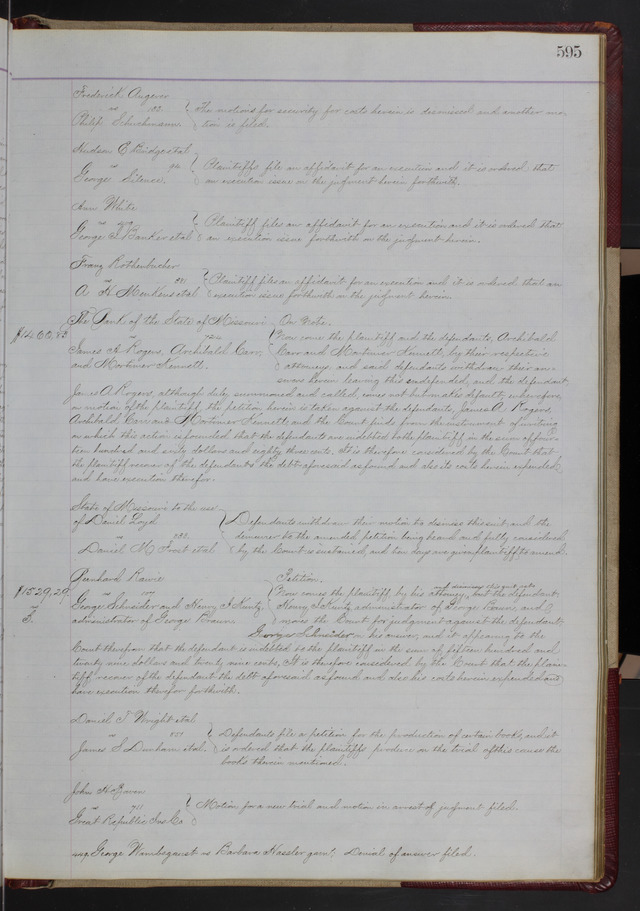 595
Frederick Augerer
vs
Philip Schuchmann } The motion for security for costs herein is dismissed and another mo-
tion is filed.
Hudson E Bridge et al
vs
George Silence. } Plaintiffs file an affidavit for an execution and it is ordered that
an execution issue on the judgment herein forthwith.
Ann White
vs
George Bunker et al } Plaintiff files an affidavit for an execution and it is ordered that
an execution issue forthwith on the judgment herein.
Franz Rothenbucher
vs
A H Menkens et al } Plaintiff files an affidavit for an execution and it is ordered that an
execution issue forthwith on the judgment herein.
The Bank of the State of Missouri On Note.
$1460,83
vs
James A Rogers, Archibald Carr,
and Mortimer Kennett. } Now come the plaintiff and the defendants, Archibald
Carr and Mortimer Kennett, by their respective
attorneys and said defendants withdraw their an-
swers herein leaving this undefended, and the defendant
James A Rogers, although duly summoned and called, comes not but makes default; wherefore,
on motion of the plaintiff, the petition herein is taken against the defendants, James A. Rogers,
Archibald Carr and Mortimer Kennett, and the Court finds from the instrument of writing
on which this action is founded that the defendants are indebted to the plaintiff in the sum of four-
teen hundred and sixty dollars and eighty three cents. It is therefore considered by the Court that
the plaintiff recover of the defendants the debt aforesaid as found and also its costs herein expended,
and have execution therefor.
State of Missouri to the use
of Daniel Loyd
vs
Daniel M Frost et al } Defendants withdraw their motion to dismiss this suit, and the
demurrer to the amended petition being heard and fully considered
by the Court is sustained, and ten days are given plaintiff to amend.
Petition.
$1529,29
vs
George Schnider and Henry F Kuntz,
administrator of George Braun } Now comes the plaintiff by his attorney, and dismisses this suit as to the defendant
Henry F Kuntz administrator of George Braun, and
moves the Court for judgment against the defendant
George Schnider on his answer, and it appearing to the
Court therefrom that the defendant is indebted to the plaintiff in the sum of fifteen hundred and
twenty nine dollars and twenty nine cents, It is therefore considered by the Court that the plain-
tiff recover of the defendant the debt aforesaid as found and also his costs herein expended and
have execution therefor forthwith.
Daniel T Wright et al
vs
James S Dunham et al. } Defendants file a petition for the production of certain books, and it
is ordered that the plaintiffs produce on the trial of this cause the
books therein mentioned.
vs 711
Great Republic Ins Co } Motion for a new trial and motion in arrest of judgment filed.
George Wambeganst vs Barbara Hassler garn. Denial of answer filed.